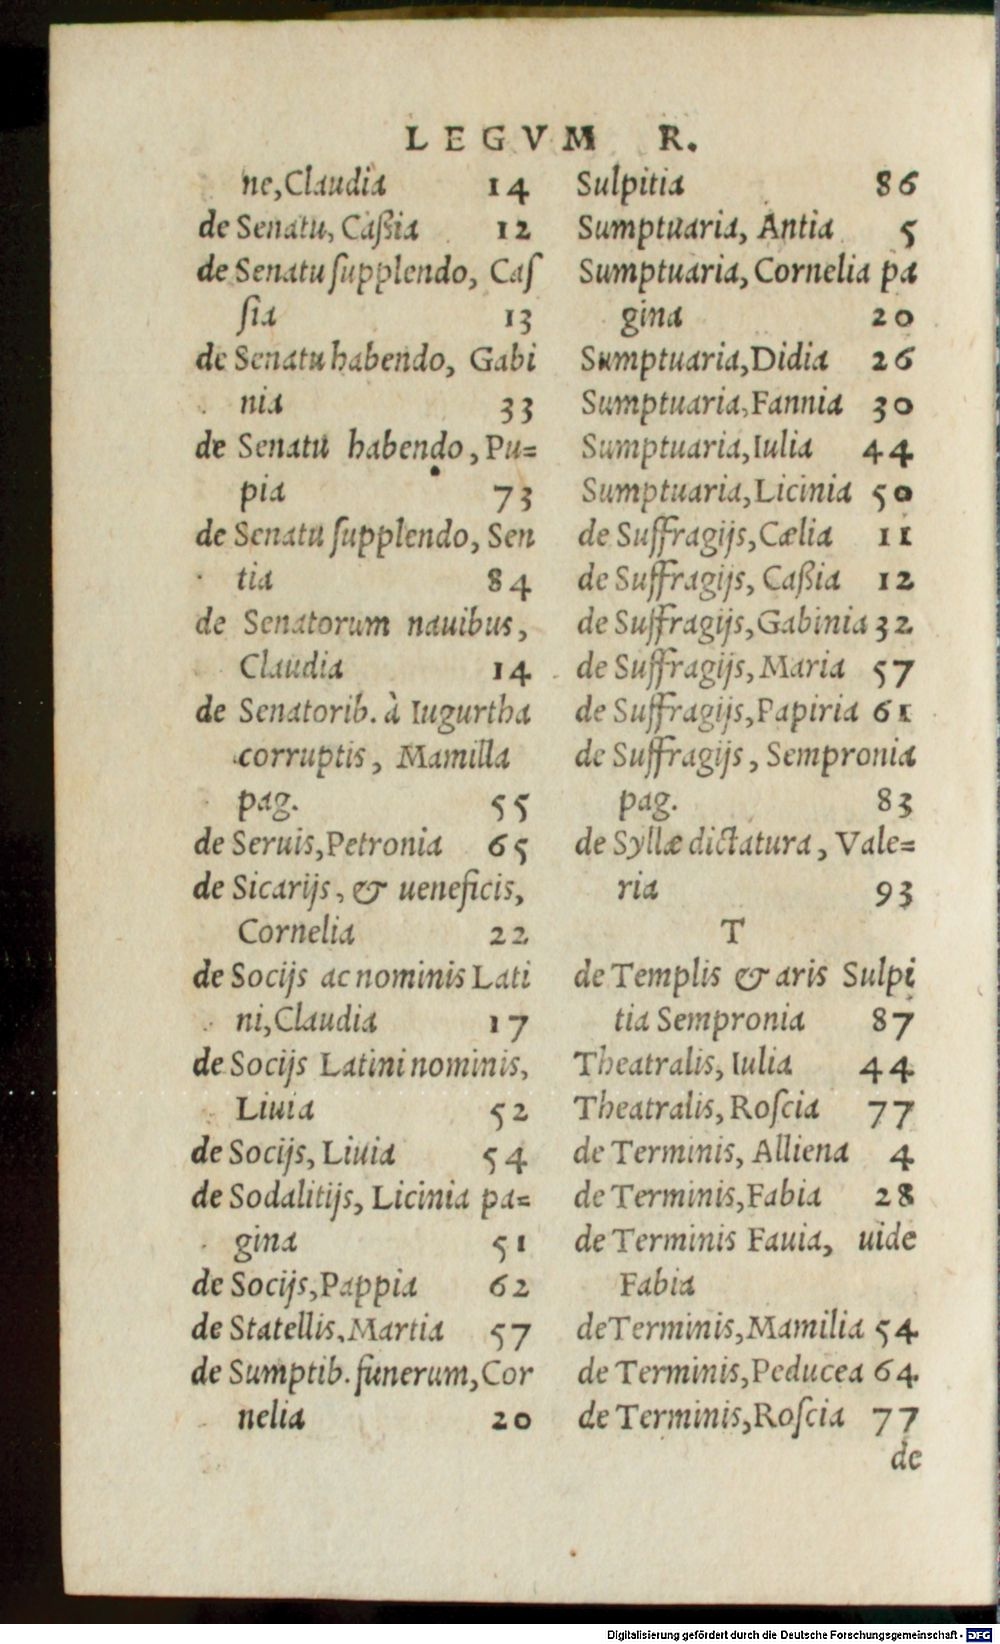 LEGVM R.
ne, Claudia 14
de Senatu, Caßia 12
de Senatu ſupplendo, Caſ
ſia 13
de Senatu habendo, Gabi
nia 33
de Senatu habendo, Pu=
pia 73
de Senatu ſupplendo, Sen
tia 84
de Senatorum nauibus,
Claudia 14
de Senatorib. à Iugurtha
corruptis, Mamilla
pag. 55
de Seruis, Petronia 65
de Sicarijs, & ueneficis,
Cornelia 22
de Socijs ac nominis Lati
ni, Claudia 17
de Socijs Latini nominis,
Liuia 52
de Socijs, Liuia 54
de Sodalitijs, Licinia pa=
gina 51
de Socijs, Pappia 62
de Statellis, Martia 57
de Sumptib. funerum, Cor
nelia 20
Sulpitia 86
Sumptuaria, Antia 5
Sumptuaria, Cornelia pa
gina 20
Sumptuaria, Didia 26
Sumptuaria, Fannia 30
Sumptuaria, Iulia 44
Sumptuaria, Licinia 50
de Suffragijs, Cælia 11
de Suffragijs, Caßia 12
de Suffragijs, Gabinia 32
de Suffragijs, Maria 57
de Suffragijs, Papiria 61
de Suffragijs, Sempronia
pag. 83
de Syllæ dictatura, Vale=
ria 93
T
de Templis & aris Sulpi
tia Sempronia 87
Theatralis, Iulia 44
Theatralis, Roſcia 77
de Terminis, Alliena 4
de Terminis, Fabia 28
de Terminis Fauia, uide
Fabia
de Terminis, Mamilia 54
de Terminis, Peducea 64
de Terminis, Roſcia 77
de
Digitalisierung gefördert durch die Deutsche Forschungsgemeinschaft - DFG